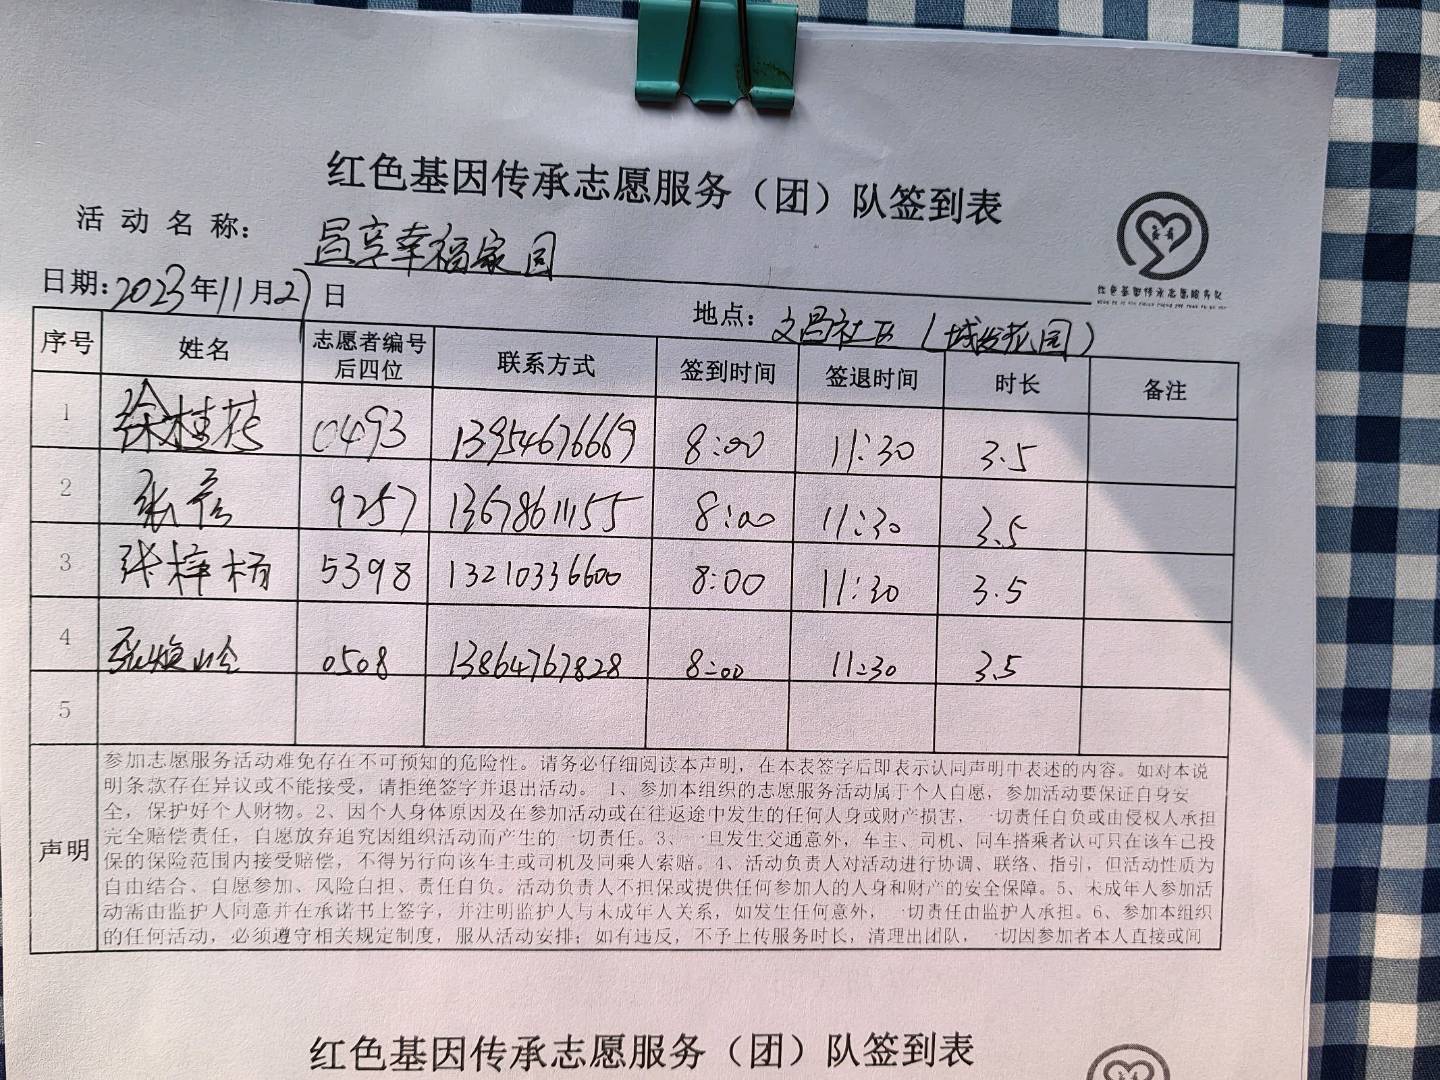 红色基因传承志愿服务（团）队签到表
活动名称：昌享幸福家园
日期：2023年11月27日 地点：文昌社区（城发花园）
红色基因传承志愿服务队
序号 姓名 志愿者编号后四位 联系方式 签到时间 签退时间 时长 备注
1 徐桂花 0493 13954676669 8:00 11:30 3.5
2 张 9257 13678611155 8:00 11:30 3.5
3 张梓杨 5398 13210336600 8:00 11:30 3.5
4 张 0508 13864767828 8:00 11:30 3.5
5
声明
参加志愿服务活动难免存在不可预知的危险性。请务必仔细阅读本声明，在本表签字后即表示认同声明中表述的内容。如对本说
明条款存在异议或不能接受，请拒绝签字并退出活动。 1、参加本组织的志愿服务活动属于个人自愿，参加活动要保证自身安
全，保护好个人财物。2、因个人身体原因及在参加活动或在往返途中发生的任何人身或财产损害，一切责任自负或由侵权人承担
完全赔偿责任，自愿放弃追究因组织活动而产生的一切责任。3、一旦发生交通意外，车主、司机、同车搭乘者认可只在该车已投
保的保险范围内接受赔偿，不得另行向该车主或司机及同乘人索赔。4、活动负责人对活动进行协调、联络、指引，但活动性质为
自由结合、自愿参加、风险自担、责任自负。活动负责人不担保或提供任何参加人的人身和财产的安全保障。5、未成年人参加活
动需由监护人同意并在承诺书上签字，并注明监护人与未成年人关系，如发生任何意外，一切责任由监护人承担。6、参加本组织
的任何活动，必须遵守相关规定制度，服从活动安排；如有违反，不予上传服务时长，清理出团队，一切因参加者本人直接或间
红色基因传承志愿服务（团）队签到表